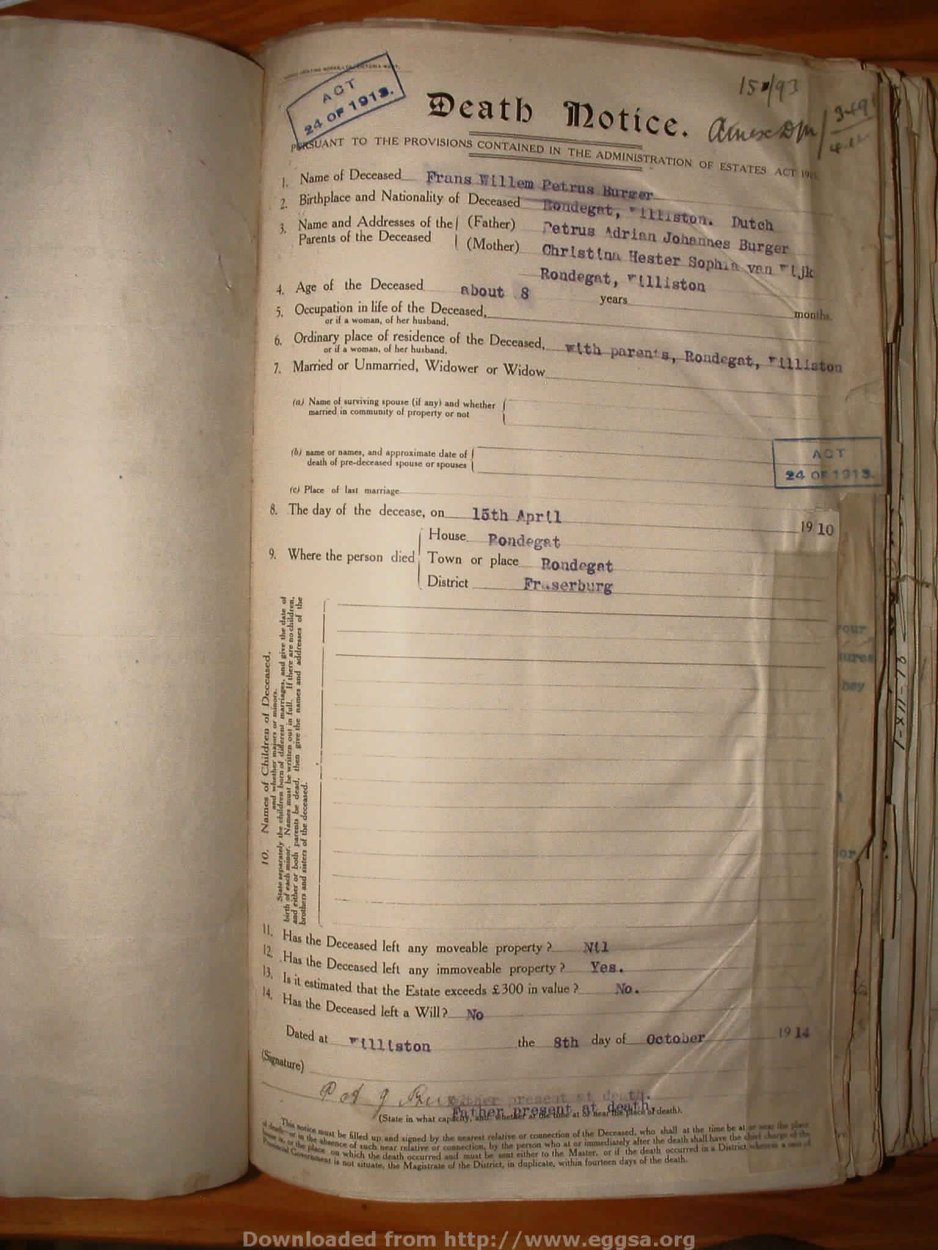 ACT
24 OF 1913.
Death Notice.
PURSUANT TO THE PROVISIONS CONTAINED IN THE ADMINISTRATION OF ESTATES ACT
1. Name of Deceased Frans Willem Petrus Burger
2. Birthplace and Nationality of Deceased Rondegat, Williston. Dutch
3. Name and Addresses of the Parents of the Deceased (Father) Petrus Adrian Johannes Burger
(Mother) Christina Hester Sophia van Wijk
Rondegat, Williston
4. Age of the Deceased about 8 years months
5. Occupation in life of the Deceased,
or if a woman, of her husband,
6. Ordinary place of residence of the Deceased, with parents, Rondegat, Williston
or if a woman, of her husband,
7. Married or Unmarried, Widower or Widow
(a) Name of surviving spouse (if any) and whether
married in community of property or not
(b) name or names, and approximate date of
death of pre-deceased spouse or spouses
ACT
24 OF 1913.
(c) Place of last marriage
8. The day of the decease, on 15th April 1910
9. Where the person died House Rondegat
Town or place Rondegat
District Fraserburg
10. Names of Children of Deceased,
and whether majors or minors.
State separately the children born of different marriages, and give the date of
birth of each minor. Names must be written out in full. If there are no children,
and either or both parents be dead, then give the names and addresses of the
brothers and sisters of the deceased.
11. Has the Deceased left any moveable property? Nil
12. Has the Deceased left any immoveable property? Yes.
13. Is it estimated that the Estate exceeds £300 in value? No.
14. Has the Deceased left a Will? No
Dated at Williston the 8th day of October 1914
(Signature)
Father present at death.
(State in what capacity, and whether at or near the place of death).
This notice must be filled up and signed by the nearest relative or connection of the Deceased, who shall at the time be at or near the place
of death, or in the absence of such near relative or connection, by the person who at or immediately after the death shall have the chief charge of the
house in, or the place on which the death occurred and must be sent either to the Master, or if the death occurred in a District wherein a seat of
Provincial Government is not situate, the Magistrate of the District, in duplicate, within fourteen days of the death.
Downloaded from http://www.eggsa.org